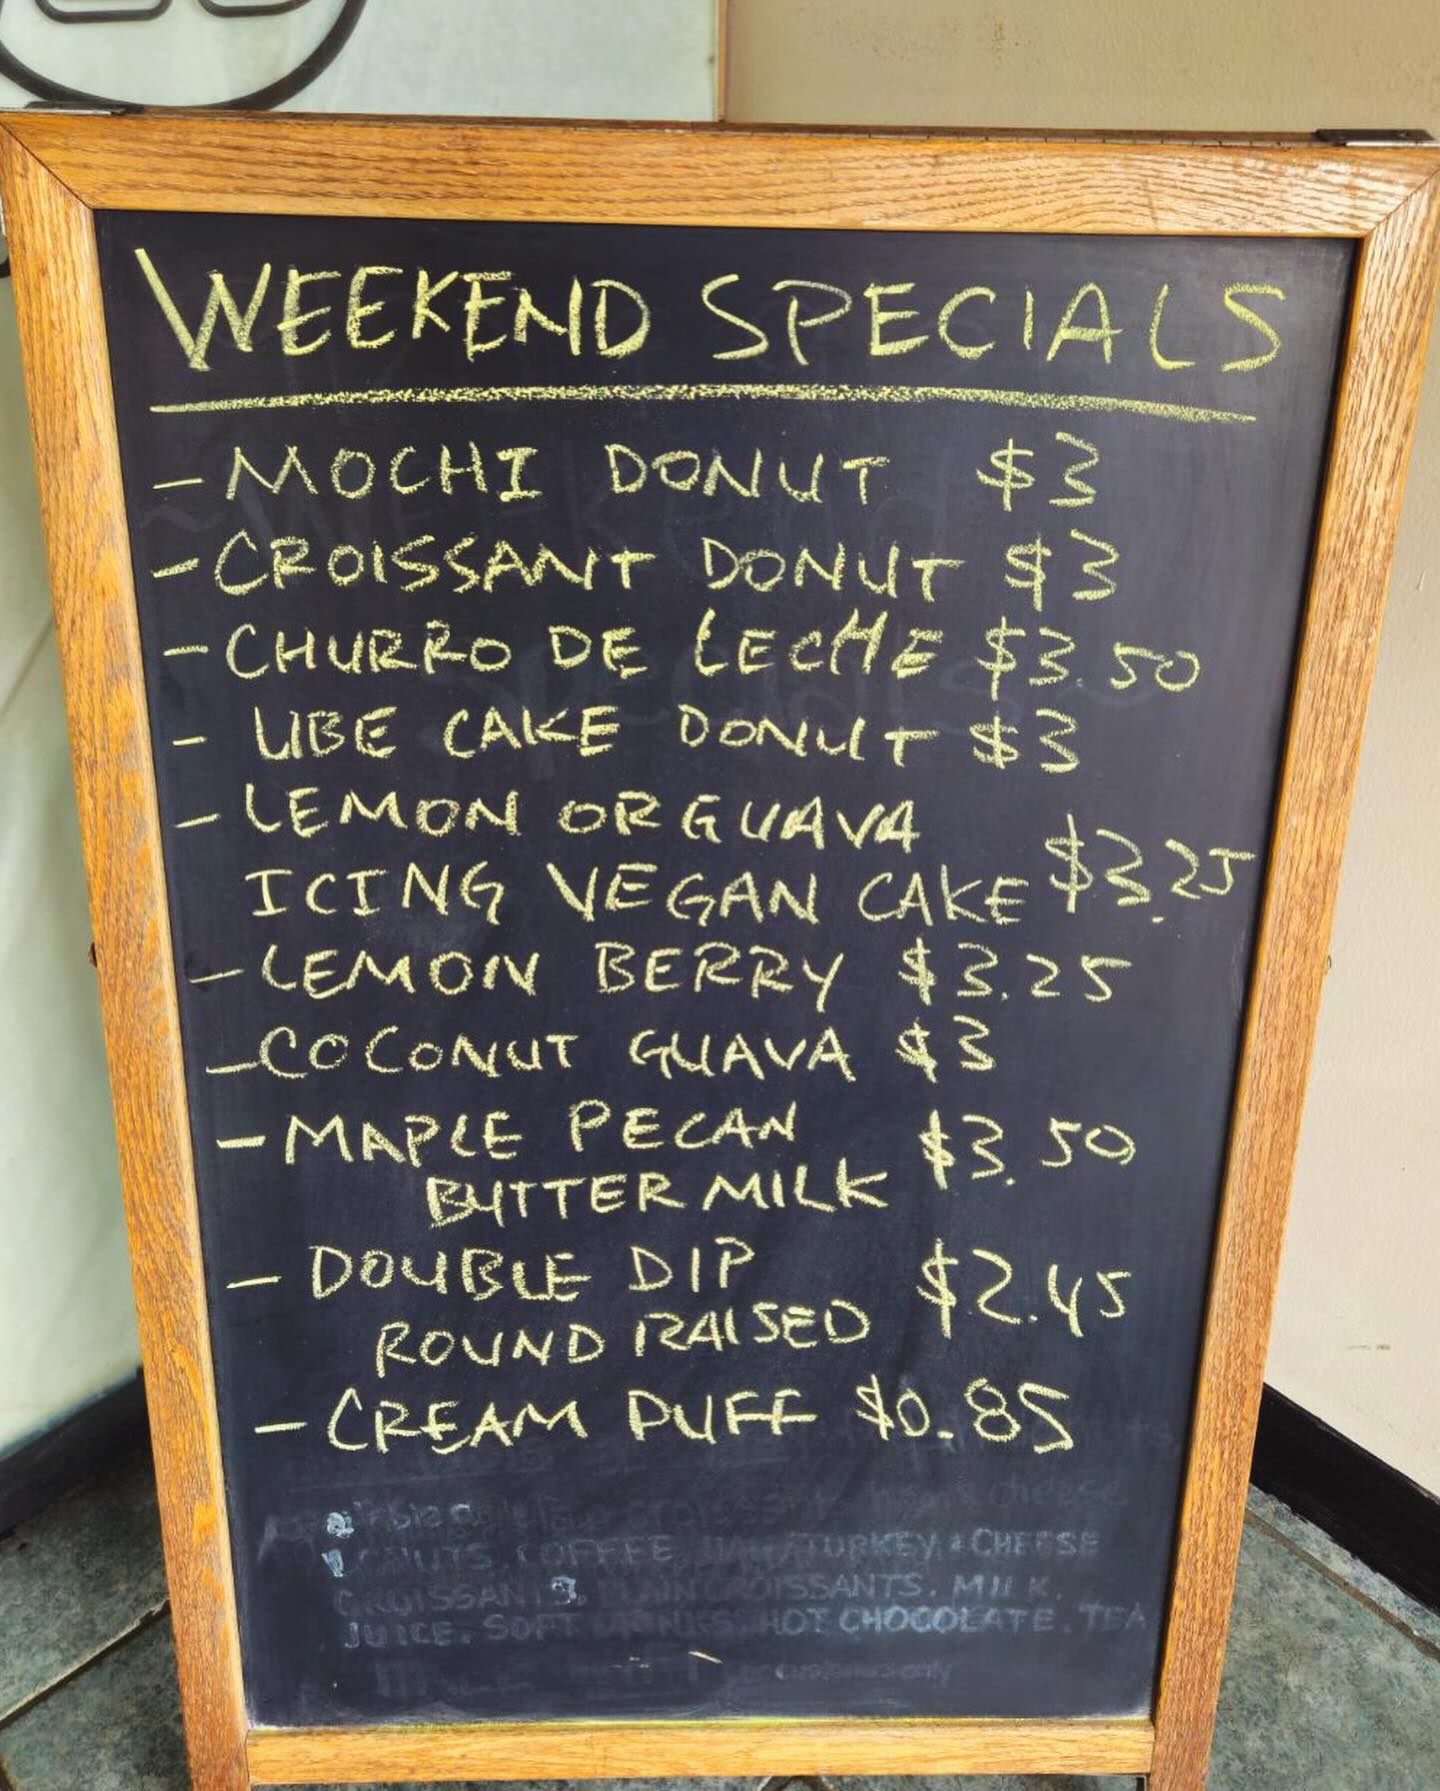 WEEKEND SPECIALS
- MOCHI DONUT $3
- CROISSANT DONUT $3
- CHURRO DE LECHE $3.50
- UBE CAKE DONUT $3
- LEMON OR GUAVA
ICING VEGAN CAKE $3.25
- LEMON BERRY $3.25
- COCONUT GUAVA $3
- MAPLE PECAN $3.50
BUTTERMILK
- DOUBLE DIP $2.45
ROUND RAISED
- CREAM PUFF $0.85
COFFEE TURKEY & CHEESE
CROISSANTS. MILK.
JUICE. SOFT HOT CHOCOLATE. TEA